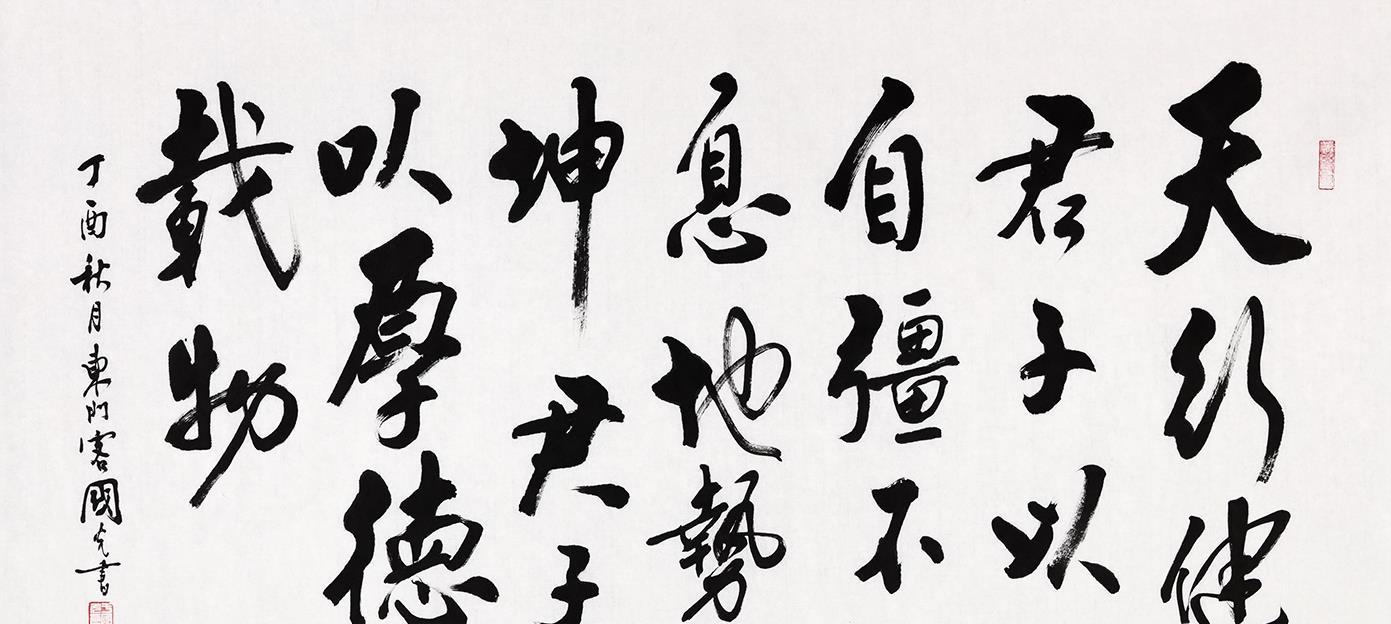 天行健
君子以
自彊不
息地勢
坤君子
以厚德
載物
丁酉秋月東門客國光書